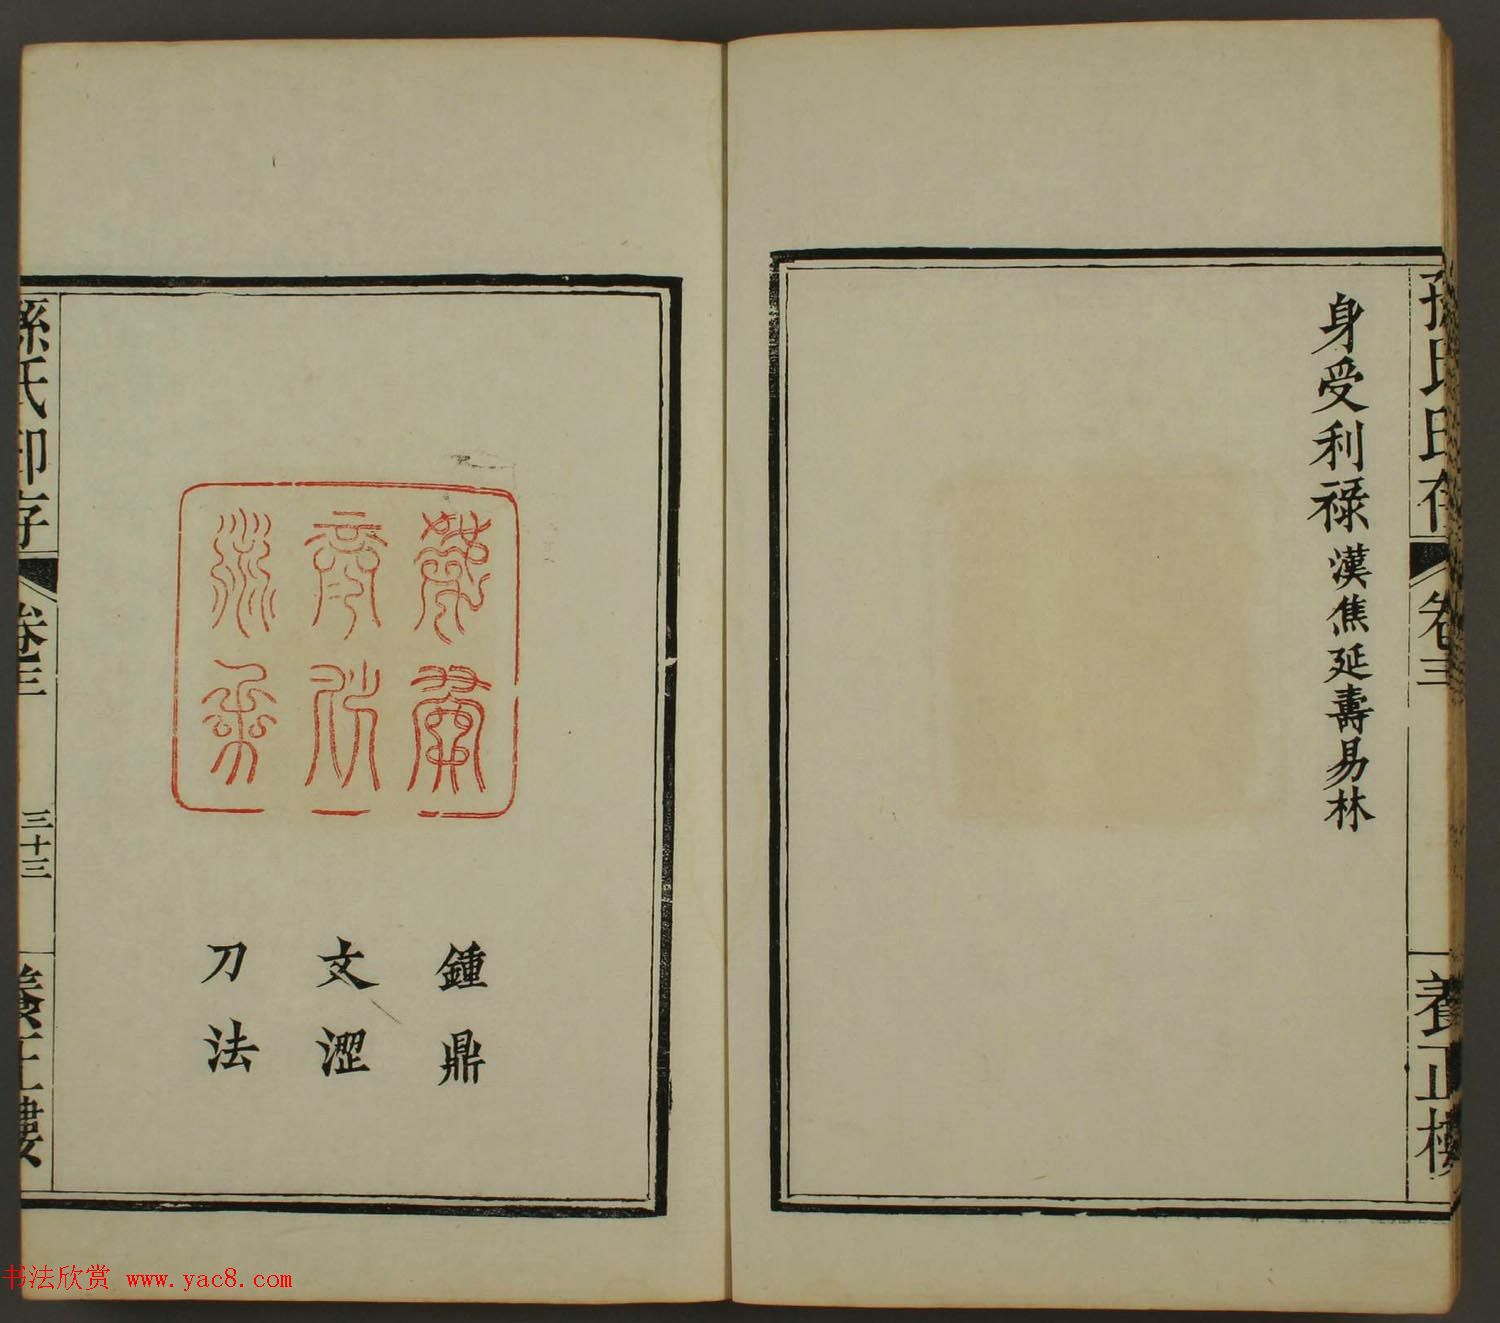 孫氏印存
卷三
養正樓
身受利祿漢焦延壽易林
鍾鼎
文澀
刀法
孫氏印存
卷三
三十三
養正樓
书法欣赏 www.yac8.com